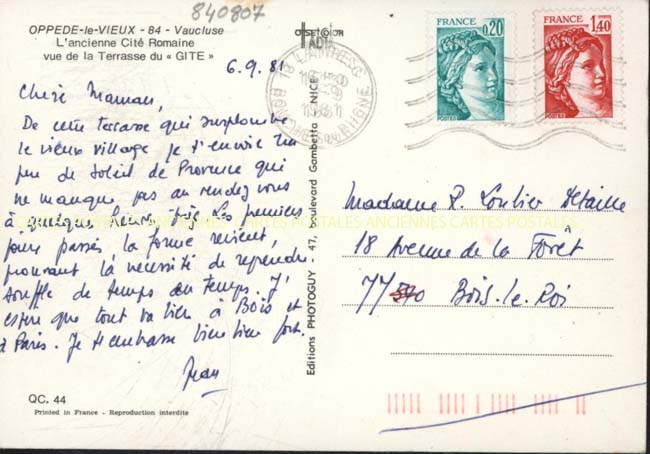 840807
OPPEDE-le-VIEUX - 84 - Vaucluse
L'ancienne Cité Romaine
vue de la Terrasse du « GITE »
6.9.81
Chère Maman,
De cette terrasse qui surplombe
le vieux village je t'envoie un
peu de Soleil de Provence qui
ne manque pas au rendez vous
à quelques heures près. Les premiers
jours passés la forme revient,
prouvant la nécessité de reprendre
souffle de temps en temps. J'
espère que tout va bien à Bois et
à Paris. Je t'embrasse bien bien fort.
Jean
QC. 44
Printed in France - Reproduction interdite
Editions PHOTOGUY - 47, boulevard Gambetta - NICE
FRANCE
0,20
POSTES
FRANCE
1,40
POSTES
Madame P. Loulier Detaille
18 Avenue de la Forêt
77 Bois-le-Roi
CARTES POSTALES ANCIENNES CARTES POSTALES